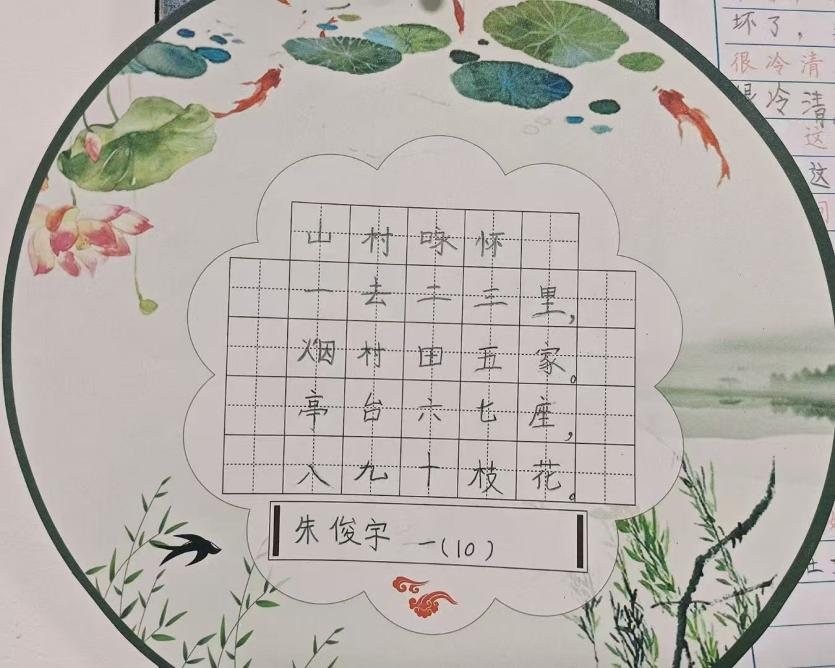 山村咏怀
一去二三里，
烟村四五家。
亭台六七座，
八九十枝花。
朱俊宇 一(10)
坏了，
很冷清
很冷清
这
这